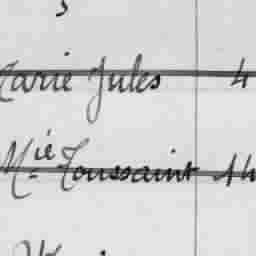 Marie Jules 4
Mie Toussaint 14